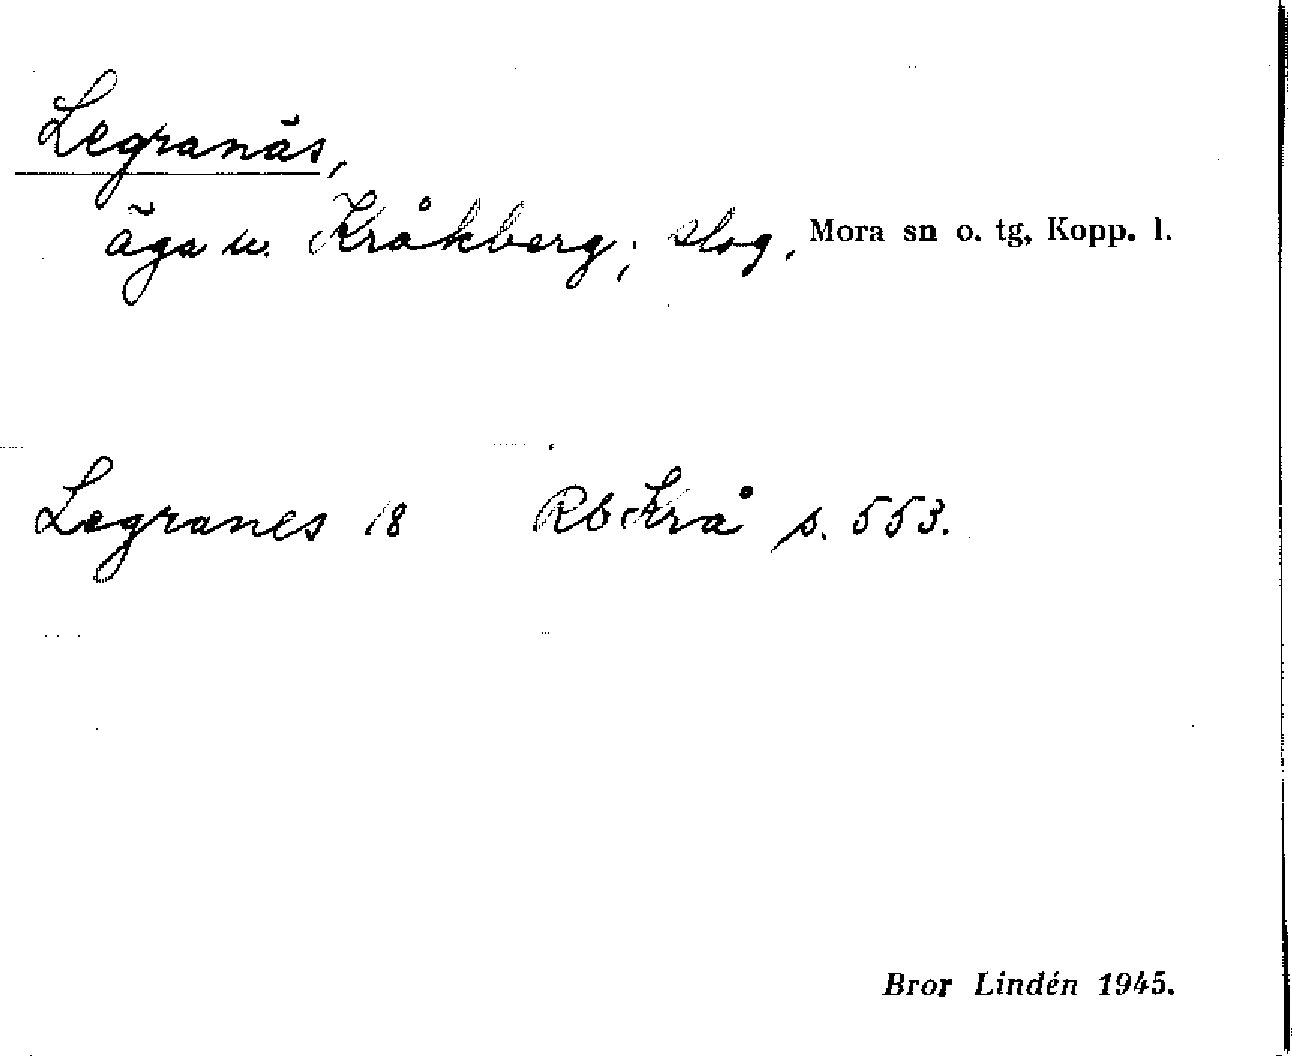 Legranäs,
äga u. Kråkberg; slog. Mora sn o. tg, Kopp. l.
Legranes 18 Rb Krå s. 553.
Bror Lindén 1945.